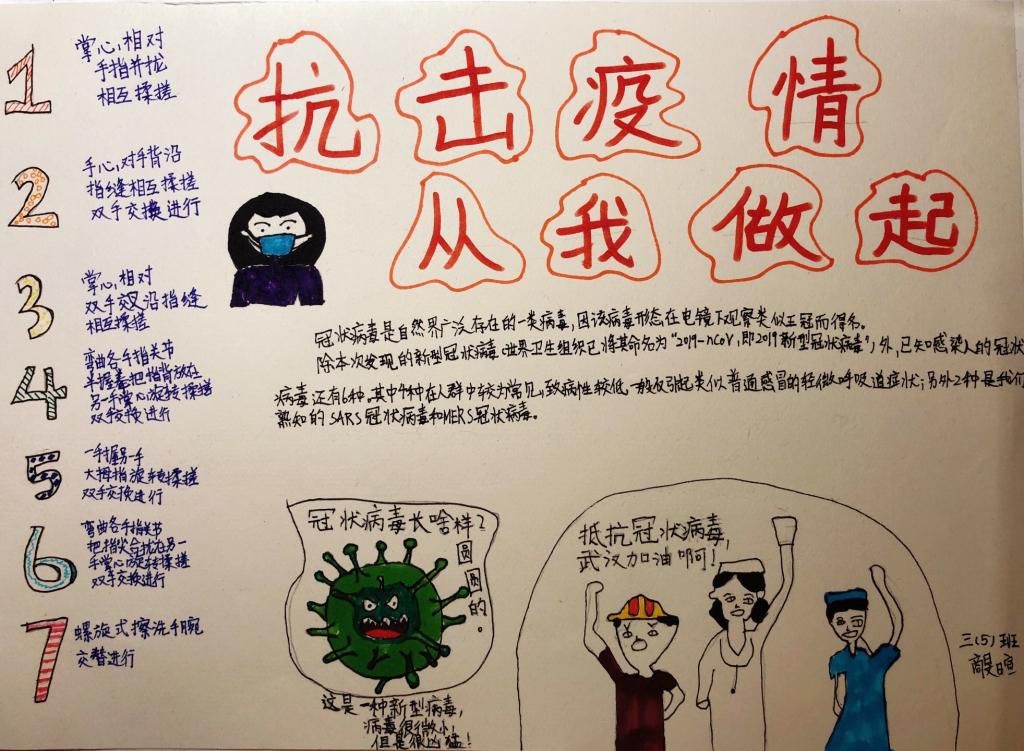 抗击疫情
从我做起
1
掌心相对
手指并拢
相互揉搓
2
手心对手背沿
指缝相互揉搓
双手交换进行
3
掌心相对
双手交叉沿指缝
相互揉搓
4
弯曲各手指关节
半握拳把指背放在
另一手掌心旋转揉搓
双手交换进行
5
一手握另一手
大拇指旋转揉搓
双手交换进行
6
弯曲各手指关节
把指尖合拢在另一
手掌心旋转揉搓
双手交换进行
7
螺旋式擦洗手腕
交替进行
冠状病毒是自然界广泛存在的一类病毒,因该病毒形态在电镜下观察类似王冠而得名。
除本次发现的新型冠状病毒(世界卫生组织已将其命名为“2019-nCoV,即2019新型冠状病毒”)外,已知感染人的冠状
病毒还有6种,其中4种在人群中较为常见,致病性较低,一般仅引起类似普通感冒的轻微呼吸道症状;另外2种是我们
熟知的SARS冠状病毒和MERS冠状病毒。
冠状病毒长啥样?
圆圆的。
这是一种新型病毒,
病毒很微小,
但是很凶猛!
抵抗冠状病毒,
武汉加油啊!
三(5)班